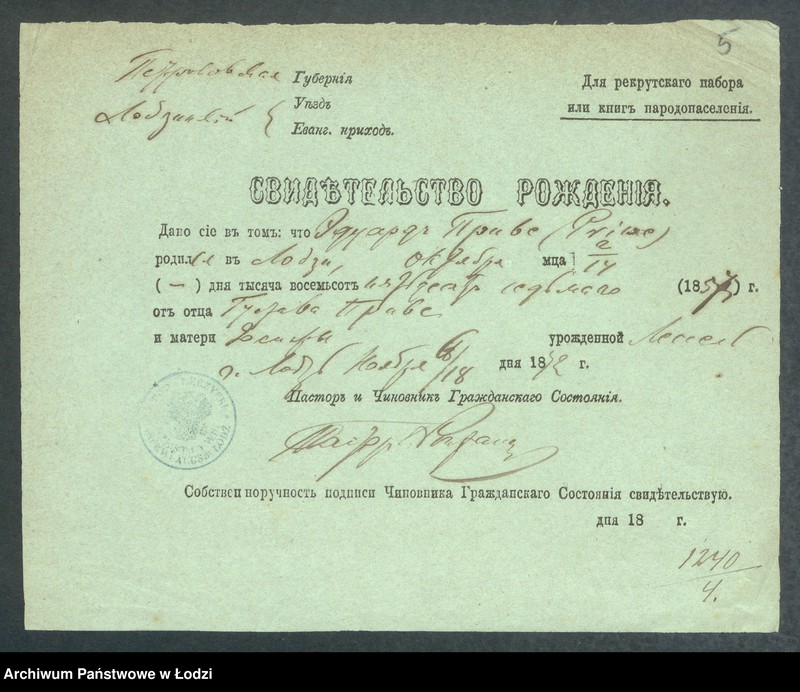 5
Петроковская Губернія
Для рекрутскаго набора
Уѣздъ
или книгъ народонаселенія.
Лодзинскій { Еванг. приходъ.
СВИДѢТЕЛЬСТВО РОЖДЕНІЯ.
Дано сіе въ томъ: что Эдуардъ Приве
родился въ Лодзи, октября мца 2/14
(—) дня тысяча восемьсотъ пятьдесятъ седьмаго (1857) г.
отъ отца Густава Приве
и матери урожденной
г. Лодзь Ноября 6/18 дня 1872 г.
Пасторъ и Чиновникъ Гражданскаго Состоянія.
Собственноручность подписи Чиновника Гражданскаго Состоянія свидѣтельствую.
дня 18 г.
1240
4.
Archiwum Państwowe w Łodzi